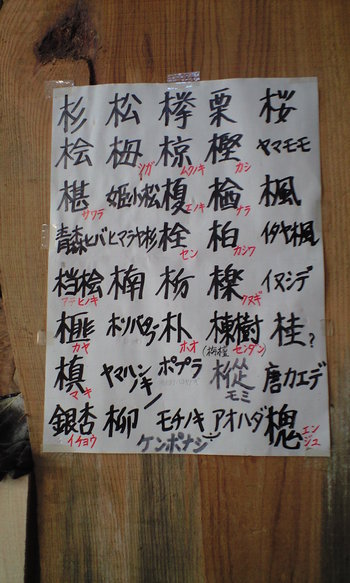 杉 松 欅 栗 桜
桧 栂 椋 樫 ヤマモモ
ツガ ムクノキ カシ
椹 姫小松 榎 楢 楓
サワラ エノキ ナラ
青森ヒバ ヒマラヤ杉 栓 柏 イタヤ楓
セン カシワ
档桧 楠 栃 櫟 イヌシデ
アテヒノキ クヌギ
榧 朴 楝樹 桂?
カヤ ホオ (栴檀 センダン)
槙 ヤマハンノキ ポプラ 樅 唐カエデ
マキ モミ
銀杏 柳 モチノキ アオハダ 槐
イチョウ エンジュ
ケンポナシ